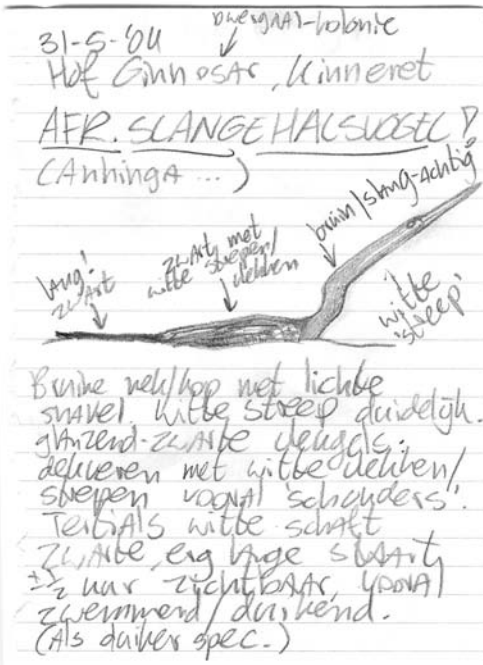 31-5-'04
dwergAAl-kolonie
Hof Ginnosar, Kinneret
AFR. SLANGEHALSVOGEL!
(Anhinga ...)
lang!
zwart
zwart met
witte strepen/
vlekken
bruin/slang-achtig
witte
'streep'
Bruine nek/kop met lichte
snavel. Witte streep duidelijk.
glanzend-zwarte vleugels.
dekveren met witte vlekken/
strepen vooral 'schouders'.
Tertials witte schaft
zwarte, erg lange staart,
± ½ uur zichtbaar, vooral
zwemmend/duikend.
(Als duiker spec.)